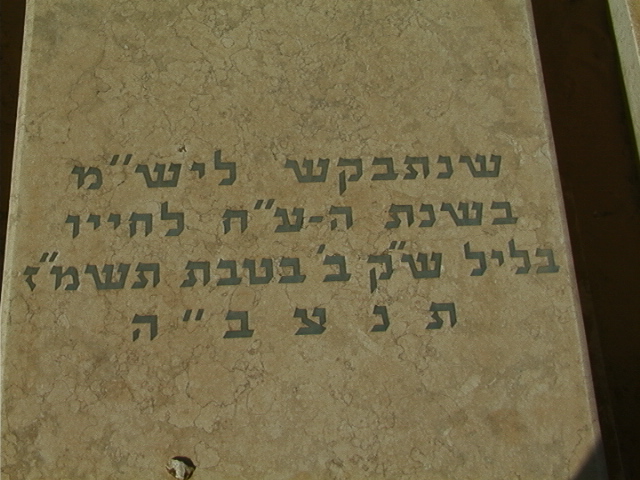 שנתבקש לישי״מ
בשנת ה-ע״ח לחייו
בליל ש״ק ב׳ בטבת תשמ״ז
ת נ צ ב ״ ה